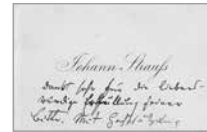 Johann Strauß
dankt sehr für die liebens-
würdige Erfüllung seiner
Bitte. Mit